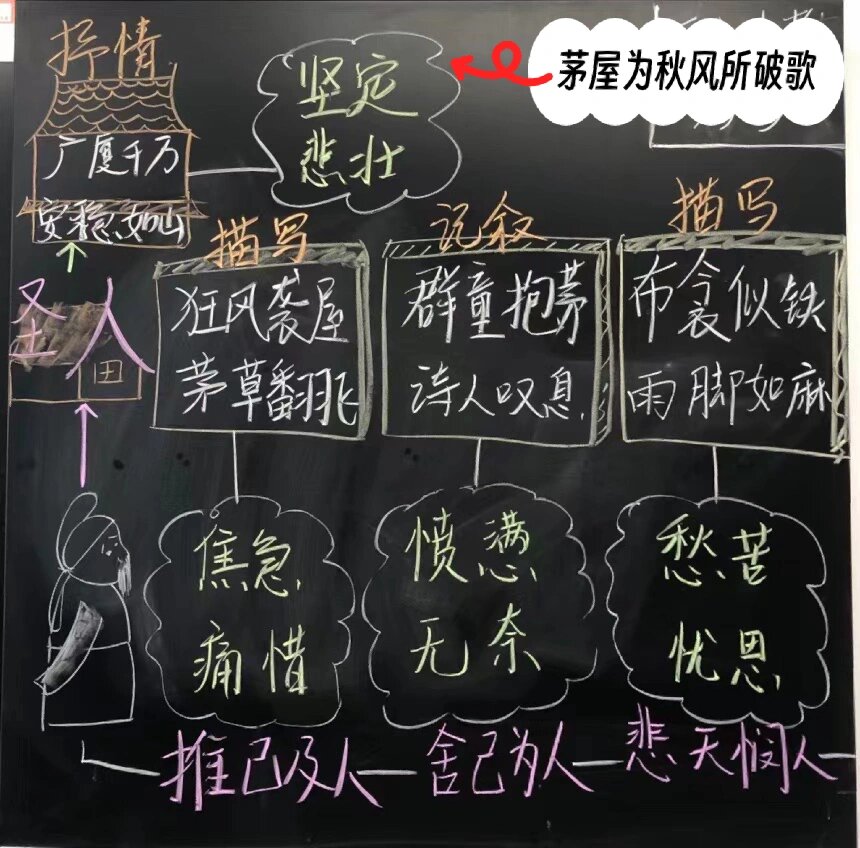 茅屋为秋风所破歌
抒情
坚定
悲壮
广厦千万
安稳如山
描写
记叙
描写
狂风袭屋
茅草翻飞
群童抱茅
诗人叹息
布衾似铁
雨脚如麻
圣人
焦急
痛惜
愤懑
无奈
愁苦
忧思
推己及人
舍己为人
悲天悯人